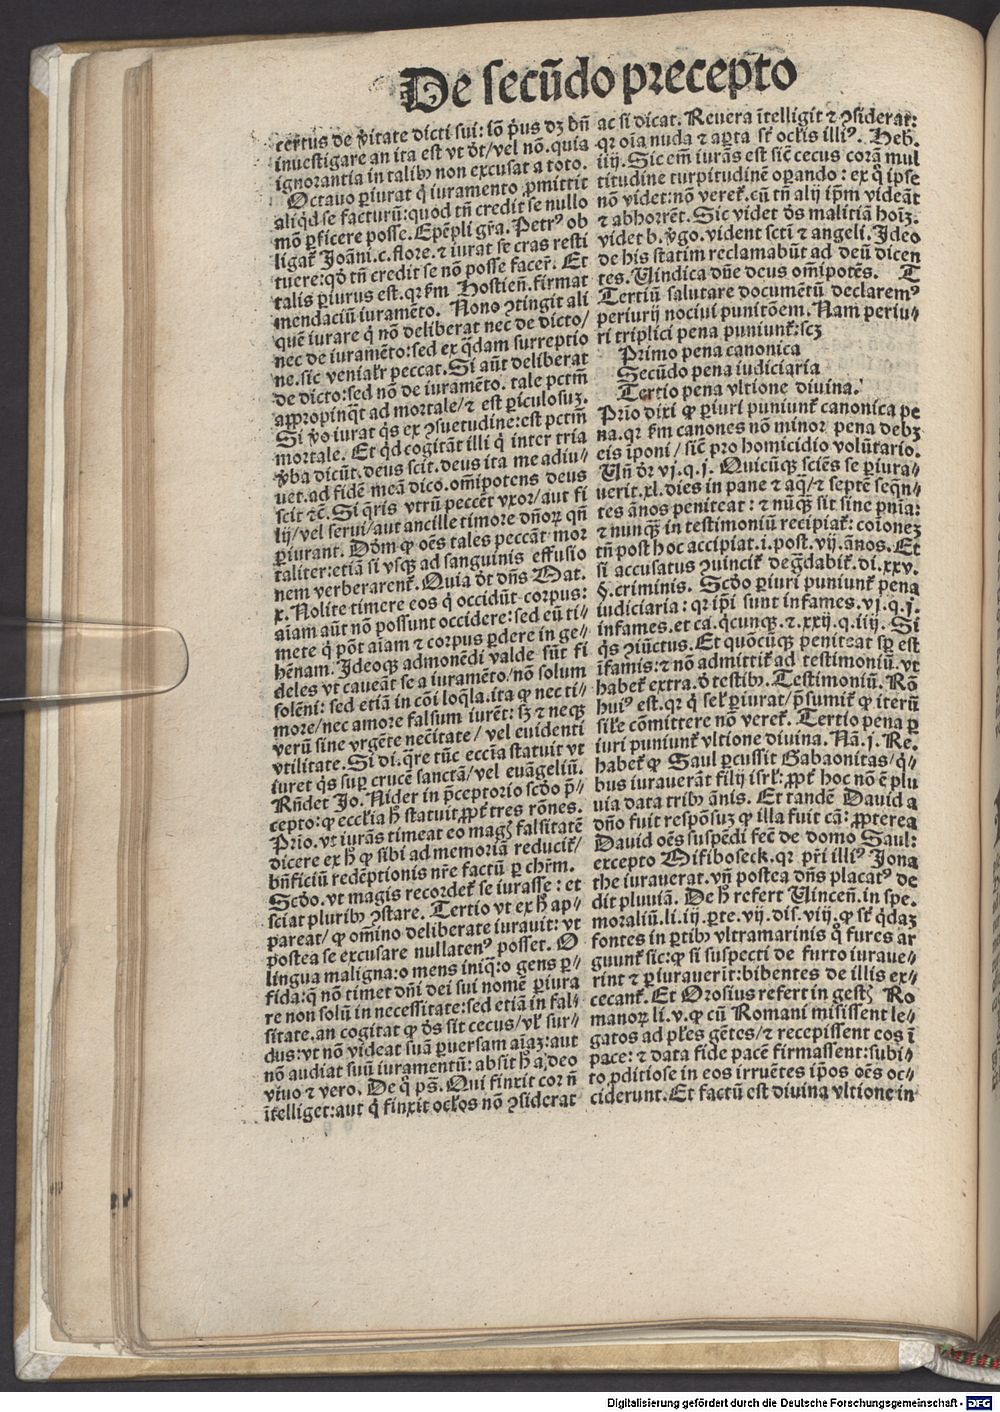 De secūdo p̄recep̄to
certus de v̓itate dicti sui: iō p̓us dꝫ bn̄
inuestigare an ita est vt dt̓/ vel nō. quia
ignorantia in talibꝰ non excusat a toto.
Octauo ꝑiurat q̓ iuramento ꝓmittit
aliqd̓ se facturū: quod tn̄ credit se nullo
mō ꝑficere posse. Exēpli gr̄a. Petrꝰ ob
ligat᷑ Joāni .c. flore. ⁊ iurat se cras resti
tuere: qd̓ tn̄ credit se nō posse facer̄. Et
talis ꝑiurus est. qr ẜm Hostien̄. firmat
mendaciū iuramēto. Nono ꝯtingit ali
quē iurare q̓ nō deliberat nec de dicto/
nec de iuramēto: sed ex q̄dam surreptio
ne. sic venialr̓ peccat. Si aūt deliberat
de dicto: sed nō de iuramēto. tale pctm̄
appropinq̄t ad mortale/ ⁊ est ꝑiculosuꝫ.
Si v̓o iurat q̓s ex ꝯsuetudine: est pctm̄
mortale. Et qd̓ cogitāt illi q̓ inter tria
v̓ba dicūt. deus scit. deus ita me adiu⸗
uet. ad fidē meā dico. om̄ipotens deus
scit ⁊c̄. Si q̄ris vtrū peccēt vxor/ aut fi
lij/ vel serui/ aut ancille timore dn̄oꝝ qn̄
ꝑiurant. Dōm ꝙ oēs tales peccāt mor
taliter: etiā si vsqꝫ ad sanguinis effusio
nem verberarent᷑. Quia dt̓ dn̄s Mat.
x. Nolite timere eos q̓ occidūt corpus:
aīam aūt nō possunt occidere: sed eū ti⸗
mete q̓ pōt aīam ⁊ corpus ꝑdere in ge⸗
hēnam. Ideoqꝫ admonēdi valde sūt fi
deles vt caueāt se a iuramēto/ nō solum
solēni: sed etiā in cōi loq̄la. ita ꝙ nec ti⸗
more/ nec amore falsum iurēt: sꝫ ⁊ neqꝫ
verū sine vrgēte nec̄itate/ vel euidenti
vtilitate. Si di. q̄re tūc ecc̄ia statuit vt
iuret q̓s suꝑ crucē sanctā/ vel euāgeliū.
Rn̄det Jo. Nider in p̄ceptorio scd̓o p̄⸗
cepto: ꝙ eccl̓ia h̓ statuit ꝓpt᷑ tres rōnes.
Prīo. vt iurās timeat eo magꝭ falsitatē
dicere ex h̓ ꝙ sibi ad memoriā reducit᷑/
bn̄ficiū redēptionis nr̄e factū ꝑ chr̄m.
Scd̓o. vt magis recordet᷑ se iurasse: et
sciat pluribꝰ ꝯstare. Tertio vt ex h̓ ap⸗
pareat/ ꝙ om̄ino deliberate iurauit: vt
postea se excusare nullatenꝰ posset. O
lingua maligna: o mens iniq̄: o gens ꝑ⸗
fida: q̄ nō timet dn̄i dei sui nomē ꝑiura
re non solū in necessitate: sed etiā in fal⸗
sitate. an cogitat ꝙ d̓s sit cecus/ vl̓ sur⸗
dus: vt nō videat suā ꝑuersam aīaꝫ: aut
nō audiat suū iuramentū: absit h̓ a deo
viuo ⁊ vero. De q̓ ps̄. Qui finxit cor n̄
ītelliget: aut q̓ finxit ocl̓os nō ꝯsiderat
ac si dicat. Reuera ītelligit ⁊ ꝯsiderat:
qr oīa nuda ⁊ aꝑta st̓ ocl̓is illiꝰ. Heb.
iiij. Sic em̄ iurās est sic̄ cecus corā mul
titudine turpitudinē oꝑando: ex q̓ ipse
nō videt: nō veret᷑. cū tn̄ alij ip̄m videāt
⁊ abhorrēt. Sic videt d̓s malitiā hoīꝫ.
videt b. v̓go. vident sct̄i ⁊ angeli. Ideo
de his statim reclamabūt ad deū dicen
tes. Vindica dn̄e deus om̄ipotēs. T
Tertiū salutare documētū declaremꝰ
periurij nociui punitōem. Nam periu⸗
ri triplici pena puniunt᷑: scꝫ
Primo pena canonica
Secūdo pena iudiciaria
Tertio pena vltione diuina.
Prīo dixi ꝙ ꝑiuri puniunt᷑ canonica pe
na. qr ẜm canones nō minor pena debꝫ
eis īponi/ sic̄ pro homicidio volūtario.
Vn̄ dr̓ vj. q. j. Quicūqꝫ sciēs se ꝑiura⸗
uerit. xl. dies in pane ⁊ aq̄/ ⁊ septē seqn̄⸗
tes ānos peniteat: ⁊ nūqꝫ sit sine pn̄ia:
⁊ nunqꝫ in testimoniū recipiat᷑: cōionez
tn̄ post hoc accipiat. i. post. vij. ānos. Et
si accusatus ꝯuincit᷑ degd̄abit᷑. di. xxv.
§. criminis. Scd̓o ꝑiuri puniunt᷑ pena
iudiciaria: qr ip̄i sunt infames. vj. q. j.
infames. et ca. q̄cunqꝫ. ⁊. xxij. q. iiij. Si
q̓s ꝯiūctus. Et quōcūqꝫ peniteat sꝑ est
īfamis: ⁊ nō admittit᷑ ad testimoniū. vt
habet᷑ extra. d̓ testibꝰ. Testimoniū. Rō
huiꝰ est. qr q̓ sel̓ ꝑiurat/ p̄sumit᷑ ꝙ iterū
sil̓e cōmittere nō veret᷑. Tertio pena ꝑ
iuri puniunt᷑ vltione diuina. Nā. j. Re.
habet᷑ ꝙ Saul ꝑcussit Gabaonitas/ q̓⸗
bus iurauerāt filij isrl̓: ꝓpt᷑ hoc nō ē plu
uia data tribꝰ ānis. Et tandē Dauid a
dn̄o fuit respōsuꝫ ꝙ illa fuit cā: ꝓpterea
Dauid oēs suspēdi fec̄ de domo Saul:
excepto Mifiboseck. qr pr̄i illiꝰ Jona
the iurauerat. vn̄ postea dn̄s placatꝰ de
dit pluuiā. De h̓ refert Vincen̄. in spe.
moraliū. li. iij. ꝑte. vij. dis. viij. ꝙ st̓ q̄daꝫ
fontes in ꝑtibꝰ vltramarinis q̓ fures ar
guunt᷑ sic: ꝙ si suspecti de furto iuraue⸗
rint ⁊ ꝑiurauerīt: bibentes de illis ex⸗
cecant᷑. Et Orosius refert in gestꝭ Ro
manoꝝ li. v. ꝙ cū Romani misissent le⸗
gatos ad pl̓es gētes/ ⁊ recepissent eos ī
pace: ⁊ data fide pacē firmassent: subi⸗
to ꝓditiose in eos irruētes ip̄os oēs oc⸗
ciderunt. Et factū est diuina vltione in
Digitalisierung gefördert durch die Deutsche Forschungsgemeinschaft - DFG